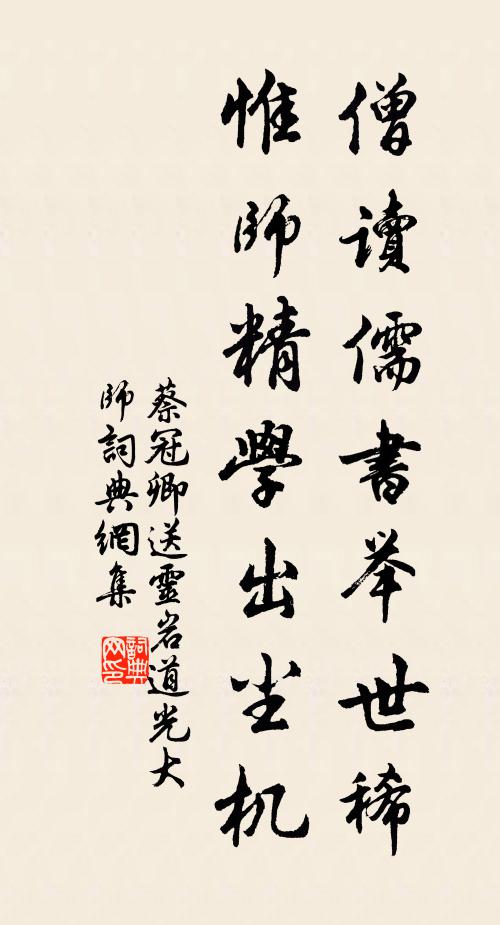 僧讀儒書举世稀
惟師精學出尘机
蔡冠卿送靈岩道光大
師詞典網集
詞典
网印